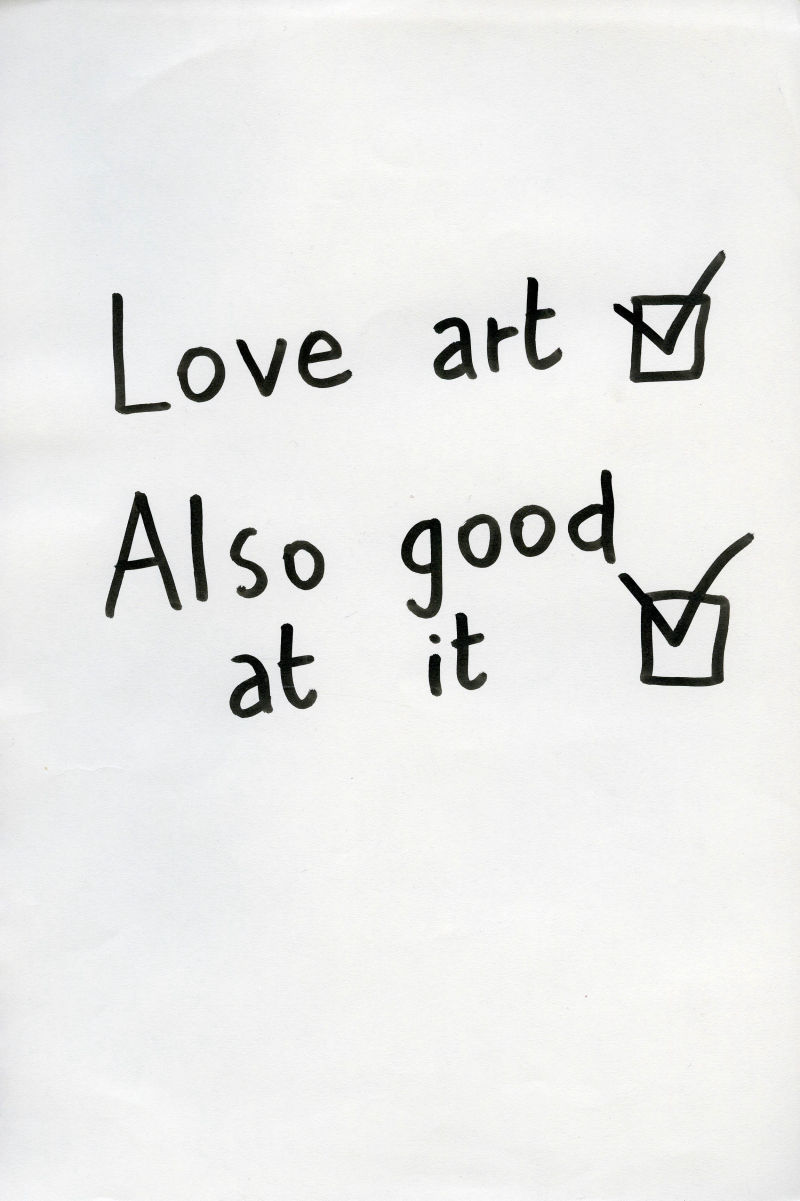 Love art ☑
Also good
at it ☑